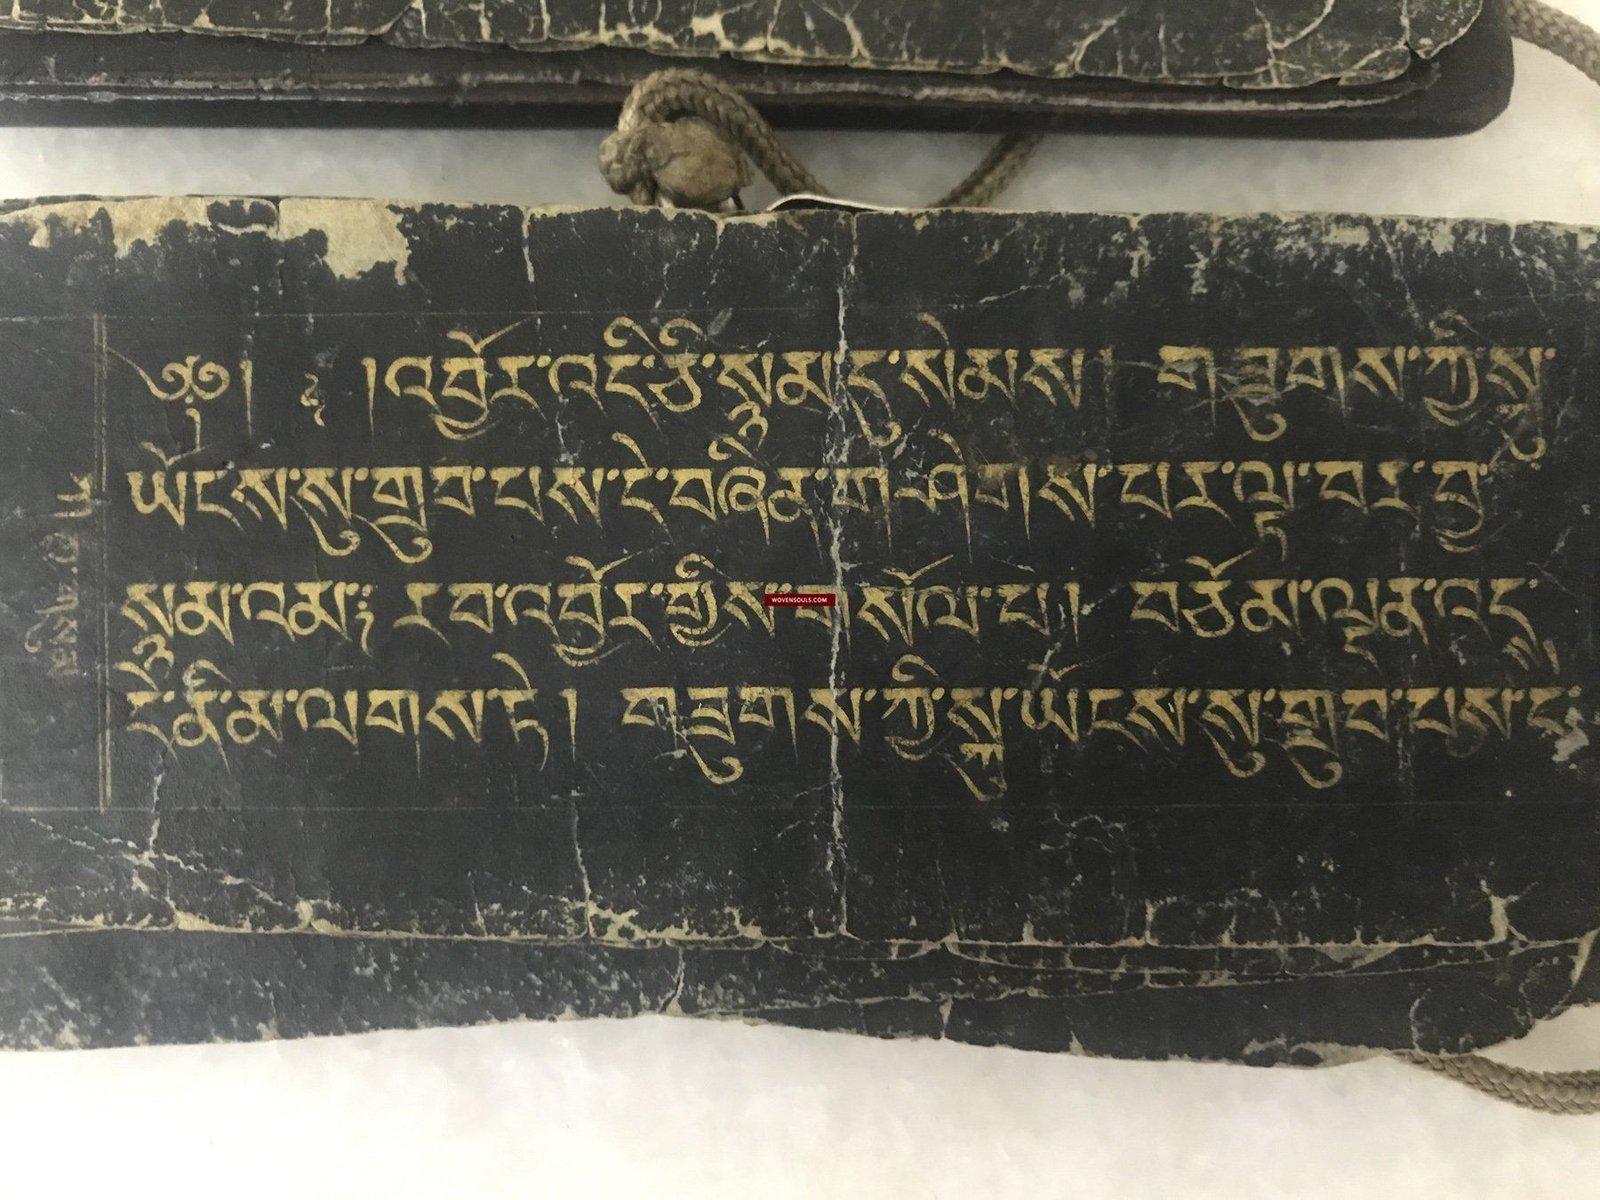 ༄༅། །འབྱོར་འདི་ཇི་སྙམ་དུ་སེམས། གཟུགས་ཀྱི་སྐུ
ཡོངས་སུ་གྲུབ་པས་དེ་བཞིན་གཤེགས་པར་ལྟ་བར་བྱ
སྙམ་འམ༑ རབ་འབྱོར་གྱིས་གསོལ་པ། བཅོམ་ལྡན་འདས
དེ་ནི་མ་ལགས་ཏེ། གཟུགས་ཀྱི་སྐུ་ཡོངས་སུ་གྲུབ་པས་ད
WOVENSOULS.COM